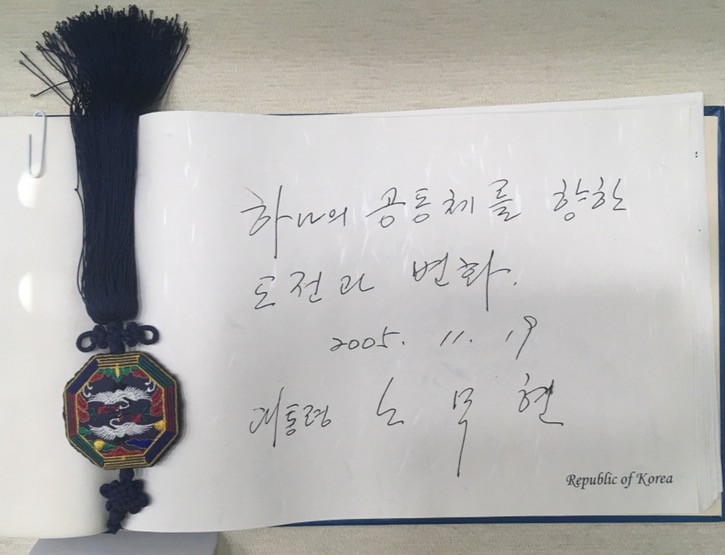 하나의 공동체를 향한
도전과 변화.
2005. 11. 19
대통령 노무현
Republic of Korea